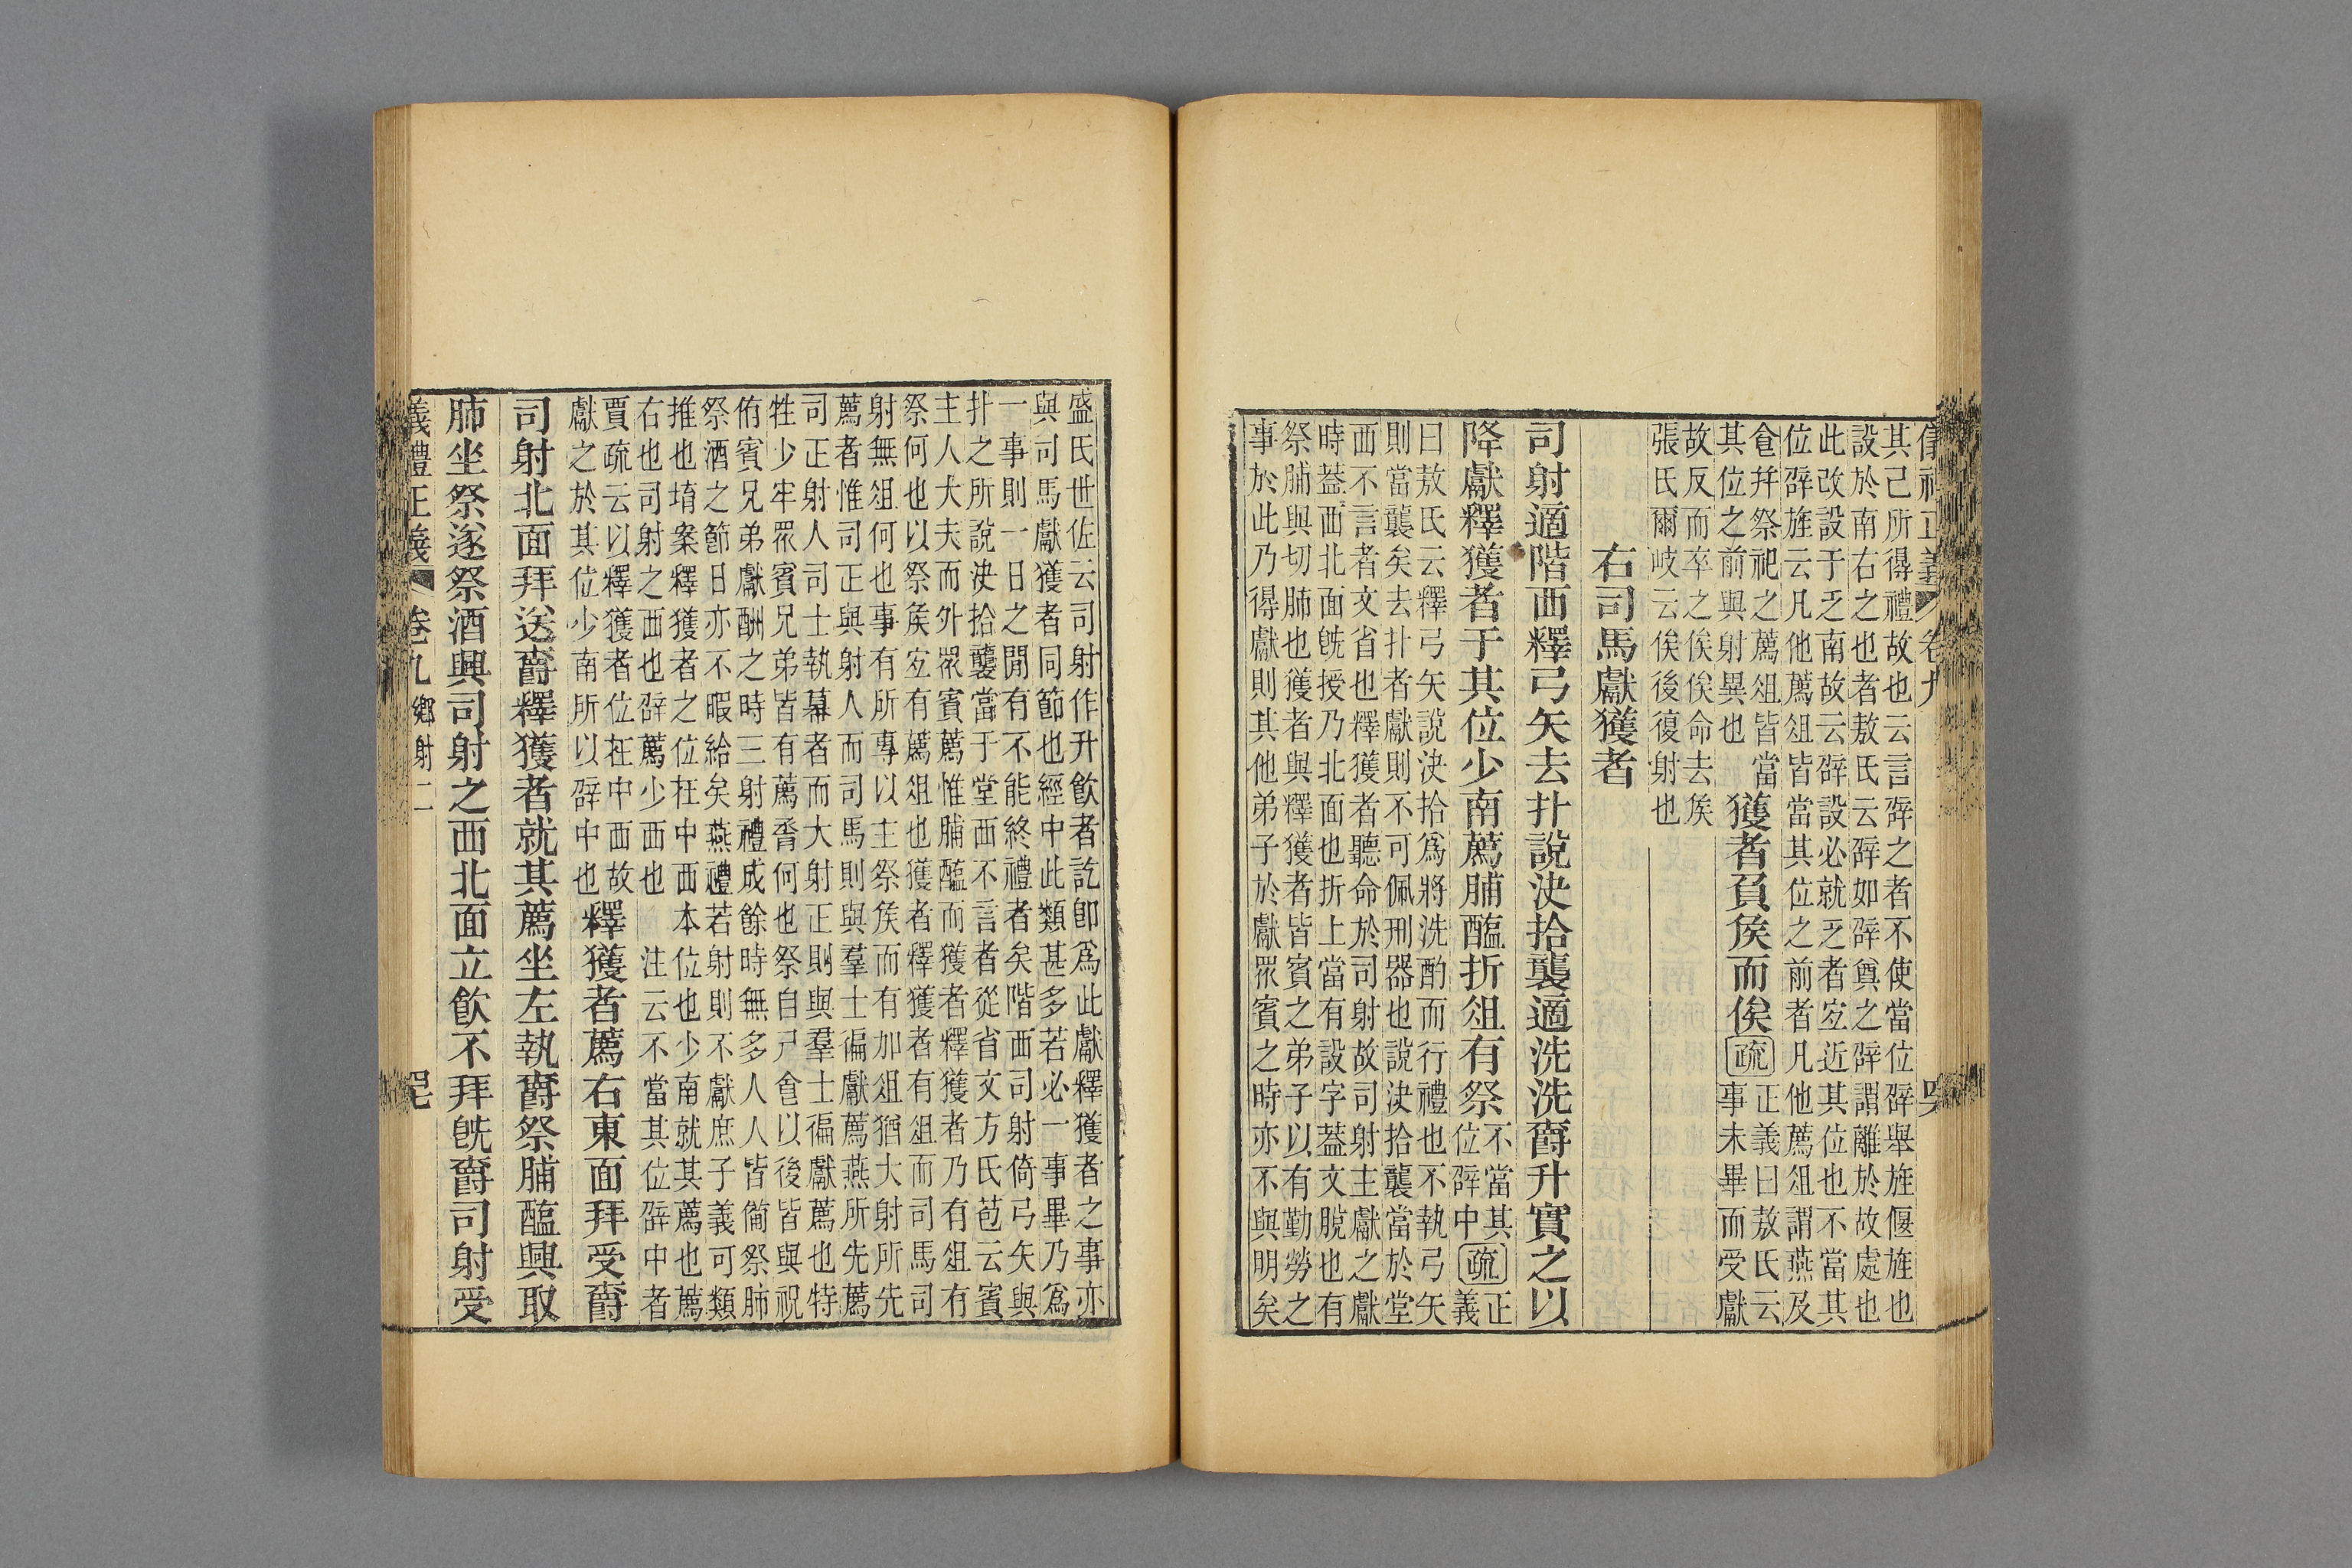 儀禮正義 卷九
其己所得禮故也云言辟之者不使當位辟舉旌偃旌也
設於南右之也者敖氏云辟如辟奠之辟謂離於故處也
此改設于乏南故云辟設必就乏者㝎近其位也不當其
位辟旌云凡他薦俎皆當其位之前者凡他薦俎謂燕及
食幷祭祀之薦俎皆當
其位之前與射異也
獲者負矦而俟
疏
正義曰敖氏云
事未畢而受獻
故反而卒之俟俟命去矦
張氏爾岐云俟後復射也
右司馬獻獲者
司射適階西釋弓矢去扑說決拾襲適洗洗爵升實之以
降獻釋獲者于其位少南薦脯醢折俎有祭
不當其
位辟中
疏
正
義
曰敖氏云釋弓矢說決拾爲將洗酌而行禮也不執弓矢
則當襲矣去扑者獻則不可佩刑器也說決拾襲當於堂
西不言者文省也釋獲者聽命於司射故司射主獻之獻
時蓋西北面旣授乃北面也折上當有設字蓋文脫也有
祭脯與切肺也獲者與釋獲者皆賓之弟子以有勤勞之
事於此乃得獻則其他弟子於獻眾賓之時亦不與明矣
盛氏世佐云司射作升飮者訖卽爲此獻釋獲者之事亦
與司馬獻獲者同節也經中此類甚多若必一事畢乃爲
一事則一日之閒有不能終禮者矣階西司射倚弓矢與
扑之所說決拾襲當于堂西不言者從省文方氏苞云賓
主人大夫而外眾賓薦惟脯醢而獲者釋獲者乃有俎有
祭何也以祭矦㝎有薦俎也獲者釋獲者有俎而司馬司
射無俎何也事有所專以主祭矦而有加俎猶大射所先
薦者惟司正與射人而司馬則與羣士徧獻薦燕所先薦
司正射人司士執冪者而大射正則與羣士徧獻薦也特
牲少牢眾賓兄弟皆有薦脀何也祭自尸食以後皆與祝
侑賓兄弟獻酬之時三射禮成餘時無多人人皆備祭肺
祭酒之節日亦不暇給矣燕禮若射則不獻庶子義可類
推也堉案釋獲者之位在中西本位也少南就其薦也薦
右也司射之西也辟薦少西也
注云不當其位辟中者
賈疏云以釋獲者位在中西故
獻之於其位少南所以辟中也
釋獲者薦右東面拜受爵
司射北面拜送爵釋獲者就其薦坐左執爵祭脯醢興取
肺坐祭遂祭酒興司射之西北面立飮不拜旣爵司射受
儀禮正義 卷九 鄉射二